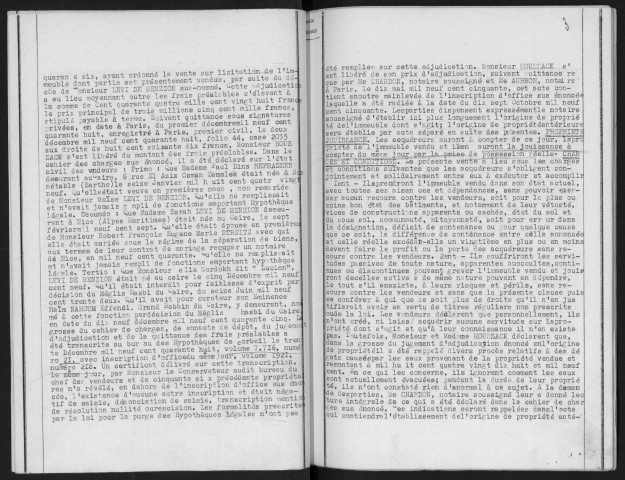 quaran e six, ayant ordonné la vente sur licitation de l'im-
meuble dont partie est présentement vendue, par suite du dé-
cès de Monsieur LEVI DE BENZION sus-nommé. Cette adjudication
a eu lieu moyennant outre les frais préalables s'élevant à
la somme de Cent quarante quatre mille cent vingt huit francs
le prix principal de trois millions cinq cent mille francs,
stipulé payable à terme. Suivant quittance sous signatures
privées, en date à Paris, du premier décembre mil neuf cent
quarante huit, enregistré à Paris, premier civil, le deux
décembre mil neuf cent quarante huit, folio 44, case 2035
aux droits de huit cent soixante dix francs, Monsieur HOUD
ZACK s'est libéré du montant des frais préalables. Dans le
cahier des charges sus énoncé, il a été déclaré sur l'état
civil des vendeurs : Primo : que Madame Paul Dina
demeurant au Caire, 8 rue El Aziz Osman Zamalek était née à
le seize Janvier mil huit cent quatre vingt
Qu'elle était veuve en premières noces, non remariée
de Monsieur Moïse LEVI DE BENZION. Qu'elle ne remplissait
et n'avait jamais r mpli de fonctions emportant Hypothèque
légale. Secundo : que Madame Sarah LEVI DE BENZION demeu-
rant à Nice (Alpes Maritimes) était née au Caire, le sept
février mil neuf cent sept. Qu'elle était épouse en premières
de Monsieur Robert François Eugène Marie avec qui
elle était mariée sous le régime de la séparation de biens,
aux termes de leur contrat de mariage reçu par un notaire
de Nice, en mil neuf cent quarante. Qu'elle ne remplissait
et n'avait jamais rempli de fonctions emportant hypothèque
légale. Tertio : que Monsieur élie Mordokh dit " Lucien",
LEVI DE BENZION était né au Caire le cinq Décembre mil neuf
cent neuf. Qu'il était interdit pour faiblesse d'esprit par
décision du Méglis Hasbi du Caire, du seize Juin mil neuf
cent trente deux. Qu'il avait pour curateur son Eminence
Haïm NAHOUM Effendi, Grand Rabbin du Caire, y demeurant, nom
mé à cette fonction par décision du Méglis Hasbi du Caire,
en date du dix neuf décembre mil neuf cent quarante cinq. La
grosse du cahier de charges, de sonacte ce dépôt, du jugement
d'adjudication et de la quittance des frais préalables a
été transcrite au bureau des Hypothèques de Corbeil le tren
te Décembre mil neuf cent quarante huit, volume 7.776, numé
ro 21, avec inscription d'office du même jour, volume 1921,
numéro 218. Un certificat délivré sur cette transcription,
le même jour, par Monsieur le Conservateur audit bureau du
chef des vendeurs et de cinquante et x précédents propriétai
res n'a révélé, en dehors de l'inscription d'office sus énon
cée, l'existence d'aucune autre inscription et était néga-
tif de saisie, dénonciation de saisie, transcription mention
de résolution nullité ou rescision. Les formalités prescrites
par la loi pour la purge des Hypothèques Légales n'ont pas
3
été remplies sur cette adjudication. Monsieur HOUDZACK s'
est libéré de son prix d'adjudication, suivant quittance re
çue par Me CHARDON, notaire soussigné et Me AUBRON, notaire
à Paris, le dix mai mil neuf cent cinquante, cet acte con-
tient encore mainlevée de l'inscription d'office sus énoncée
laquelle a été rédiée à la date du dix sept Octobre mil neuf
cent cinquante. Les parties dispensent expressément le notaire
soussigné d'établir ici plus longuement l'origine de proprié
té de l'immeuble dont s'agit l'origine de propriété antérieure
sera établie par acte séparé en suite des présentes. PROPRIETE
JOUISSANCE. Les acquéreurs auront à compter de ce jour, la pro
priété de l'immeuble vendu et ils en auront la jouissance à
compter du même jour par la prise de possession réelle. CHAR
GES ET CONDITIONS. La présente vente a lieu sous les charges
et conditions suivantes que les acquéreurs s'obligent con-
jointement et solidairement entre eux à exécuter et accomplir
1ent - Ils prendront l'immeuble vendu dans son état actuel,
avec toutes ses aisances et dépendances, sans pouvoir exer-
ser aucun recours contre les vendeurs, soit pour le plus ou
moins bon état des bâtiments, et notamment de leur vétusté,
vices de constructions apparents ou cachés, état du sol et
du sous sol, communauté, mitoyenneté, soit pour err ur dans
la désignation, déficit de contenance ou pour quelque cause
que ce soit, la différence de contenance entre celle énoncée
et celle réelle excédât-elle un vingtième en plus ou en moins
devant faire le profit ou la perte des acquéreurs sans re-
cours contre les vendeurs. 2ent - Ils souffriront les servi-
tudes passives de toute nature, apparentes ou occultes, conti-
nues ou discontinues pouvant grever l'immeuble vendu et joui
ront decelles active s de même nature pouvant en dépendre,
le tout s'il en existe, à leurs risques et périls, sans re-
cours contre les vendeurs et sans que la présente clause puis
se conférer à qui que ce soit plus de droits qu'il n'en jus
tifierait avoir en vertu de titres réguliers non prescrits
ou de la loi. Les vendeurs déclarent que personnellement, ils
n'ont créé, ni laissé acquérir aucune servitude sur la pro-
priété dont s'agit et qu'à leur connaissance il n'en existe
pas. Toutefois, Monsieur et Madame HOUDZACK déclarent que,
dans la grosse du jugement d'adjudication énoncé en l'origine
de propriété il a été rappelé divers procès relatifs à des dé
gâts causés par les eaux provenant de la propriété vendue et
remontant à mil hu it cent quatre vingt dix huit et mil neuf
cent. En ce qui les concerne, ils ignorent comment les eaux
sont actuellement évacuées; pendant la durée de leur proprié
té, ils n'ont constaté rien d'anormal à ce sujet. A la deman
de des parties, Me CHARDON, notaire soussigné leur a donné lec
ture intégrale de ce qui a été déclaré dans le cahier de char
ges sus énoncé. Ces indications seront rappelées dans l'acte
qui contiendra l'établissement de l'origine de propriété anté-